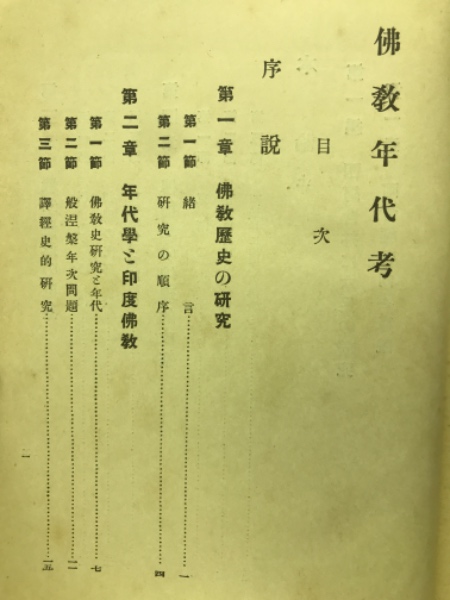 佛敎年代考
目次
序說
第一章 佛敎歷史の硏究
第一節 緖言……一
第二節 硏究の順序……四
第二章 年代學と印度佛敎
第一節 佛敎史硏究と年代……七
第二節 般涅槃年次問題……一一
第三節 譯經史的硏究……一五
一